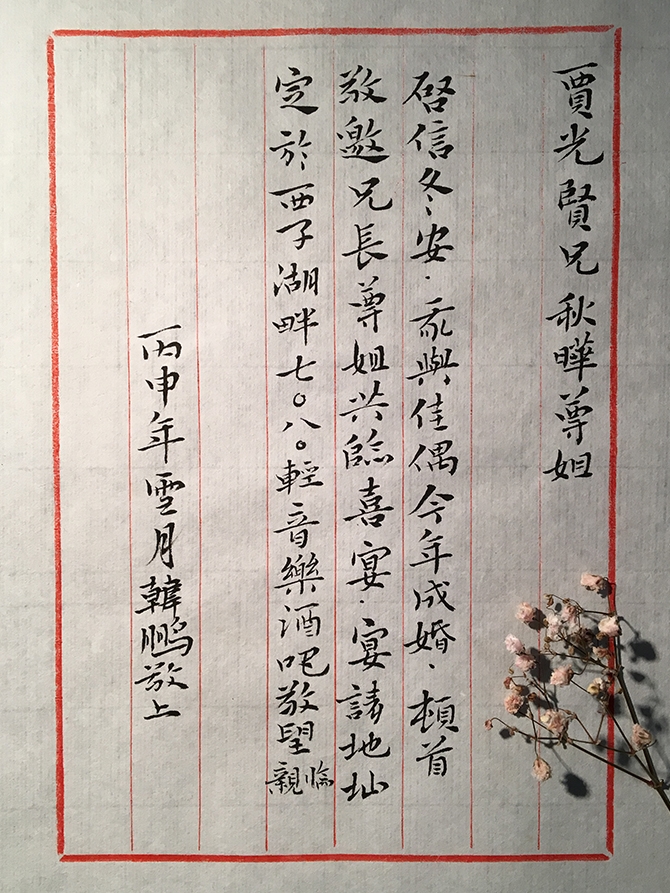 賈光賢兄秋曄尊姐
啓信冬安·我與佳偶今年成婚·頓首
敬邀兄長尊姐共臨喜宴·宴請地址
定於西子湖畔七〇八〇輕音樂酒吧敬望親臨
丙申年雪月韓鵬敬上